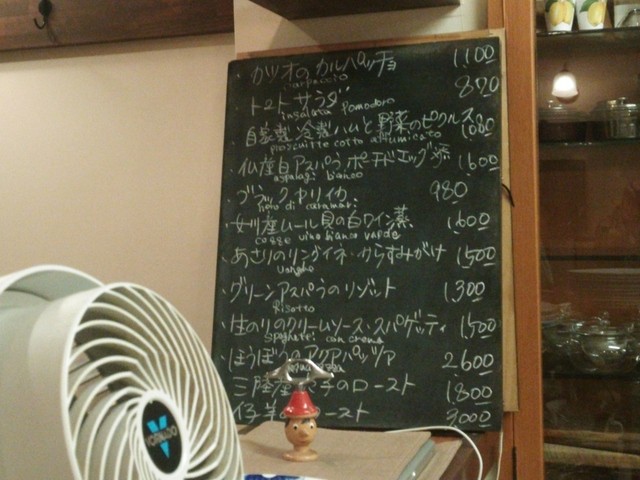 ・カツオのカルパッチョ 1,100
carpaccio
・トマトサラダ 870
insalata pomodoro
自家製冷製ハムと野菜のピクルス 1,000
prosciutto cotto affumicato
・仏産白アスパラ ポーチドエッグ添 1,600
aspalagi bianco
・ブラックヤリイカ 980
nero di caramari
・女川産ムール貝の白ワイン蒸 1,600
cozze vino bianco
・あさりのリングイネ・からすみがけ 1,500
Vongole
・グリーンアスパラのリゾット 1,300
Risotto
・生のりのクリームソース・スパゲッティ 1,500
Spaghetti con crema
・ほうぼうのアクアパッツァ 2,600
三陸産 のロースト 1,800
ースト 3000
VORNADO